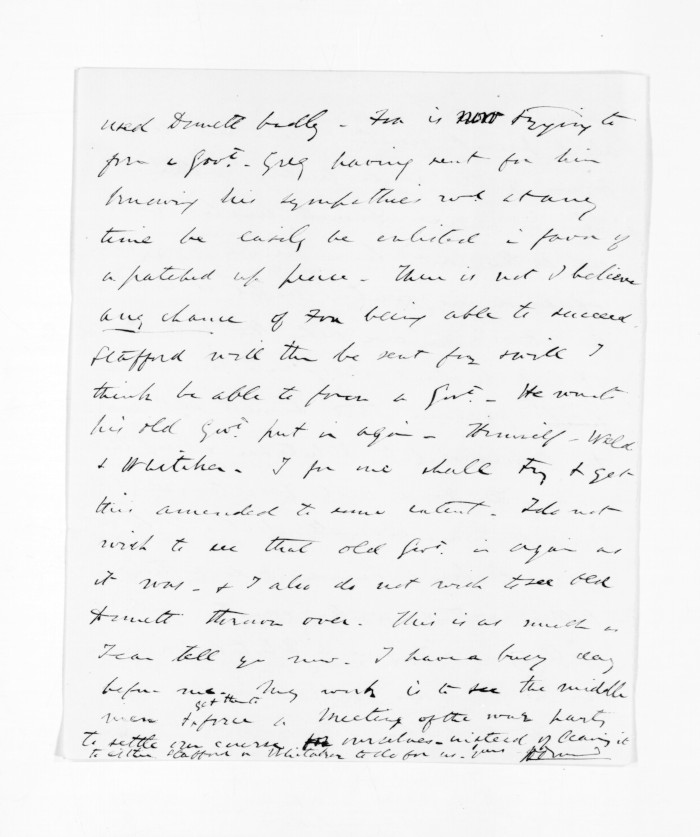 used Domett badly - Fox is now trying to
form a Govt. - Grey having sent for him
knowing his sympathies wd at any
time be easily be enlisted in favor of
a patched up peace - There is not I believe
any chance of Fox being able to succeed.
Stafford will then be sent for & will I
think be able to form a Govt. - He wants
his old Govt. put in again - Himself - Weld
& Whitaker - I for one shall try & get
this amended to some extent. I do not
wish to see that old Govt. in again as
it was - & I also do not wish to see old
Domett thrown over. This is as much as
I can tell you now. I have a busy day
before me - My work is to see the middle
men & get them to force a Meeting of the war party
to settle our course for ourselves - instead of leaving it
to either Stafford or Whitaker to do for us. Yours